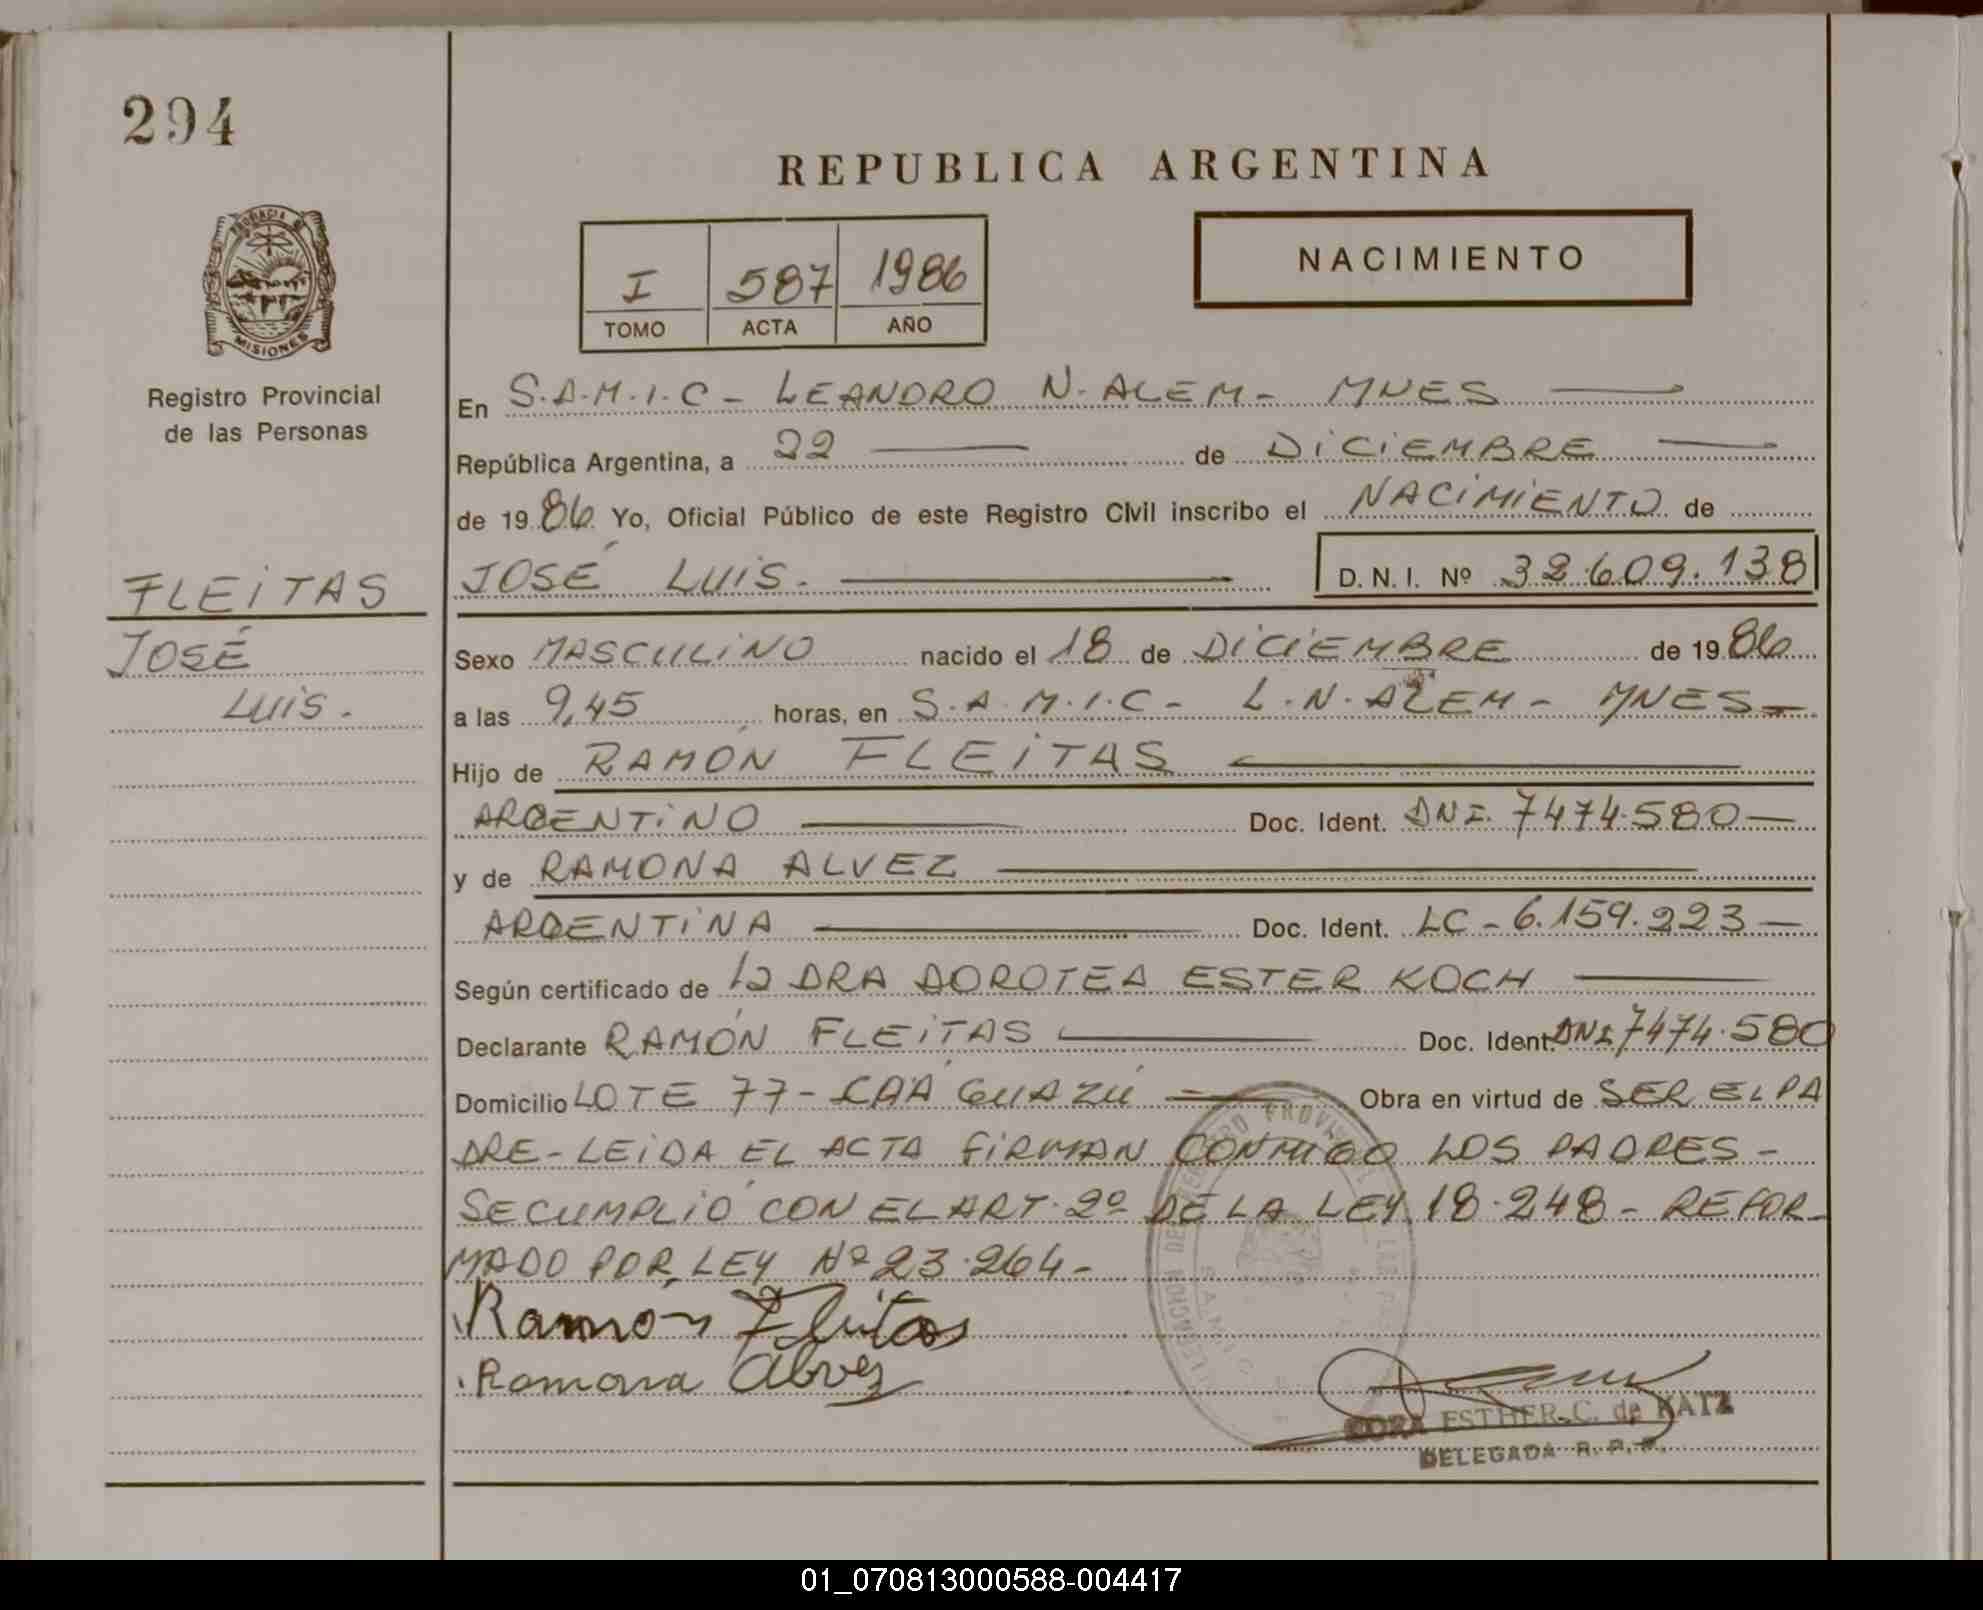 294
REPUBLICA ARGENTINA
PROVINCIA DE
MISIONES
Registro Provincial
de las Personas
I 587 1986
TOMO ACTA AÑO
NACIMIENTO
En S.A.M.I.C - LEANDRO N. ALEM - MNES
República Argentina, a 22 de DICIEMBRE
de 1986 Yo, Oficial Público de este Registro Civil inscribo el NACIMIENTO de
JOSÉ LUIS. D. N. I. Nº 32.609.138
FLEITAS
JOSÉ
LUIS.
Sexo MASCULINO nacido el 18 de DICIEMBRE de 1986
a las 9,45 horas, en S.A.M.I.C - L.N. ALEM - MNES
Hijo de RAMÓN FLEITAS
ARGENTINO Doc. Ident. DNI. 7474.580
y de RAMONA ALVEZ
ARGENTINA Doc. Ident. LC - 6.159.223
Según certificado de la DRA DOROTEA ESTER KOCH
Declarante RAMÓN FLEITAS Doc. Ident. DNI 7474.580
Domicilio LOTE 77 - CAÁ GUAZÚ Obra en virtud de SER EL PA
DRE - LEIDA EL ACTA FIRMAN CONMIGO LOS PADRES -
SE CUMPLIÓ CON EL ART. 2º DE LA LEY 18.248 - REFOR-
MADO POR LEY Nº 23.264 -
Ramón Fleitas
Ramona Alvez
ESTHER C. de KATZ
DELEGADA R. P. P.
01_070813000588-004417